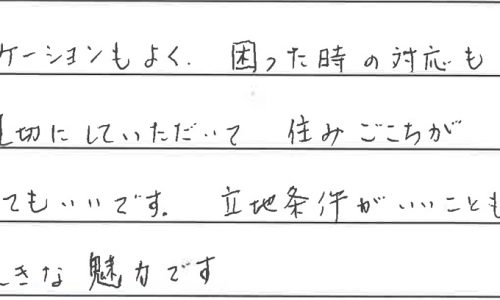 ケーションもよく. 困った時の対応も
切にしていただいて 住みごこちが
てもいいです. 立地条件がいいことも
きな魅力です